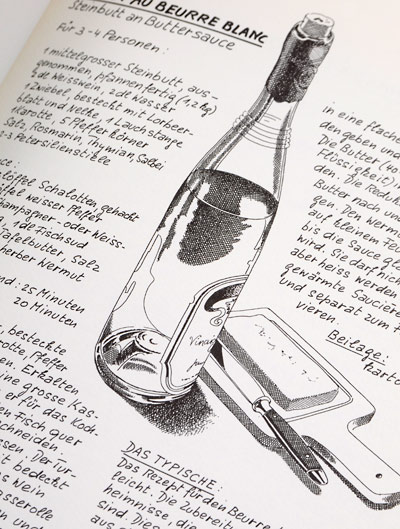 AU BEURRE BLANC
Steinbutt an Buttersauce
Für 3-4 Personen:
1 mittelgrosser Steinbutt, aus-
genommen, pfannenfertig (1,2 kg)
½ dl Weisswein, 2 dl Wasser
1 Zwiebel, besteckt mit Lorbeer-
blatt und Nelke, 1 Lauchstange
1 Karotte, 5 Pfefferkörner
Salz, Rosmarin, Thymian, Salbei
2-3 Petersilienstiele
löffel Schalotten, gehackt
weisser Pfeffer
Champagner- oder Weiss-
1 dl Fischsud
Tafelbutter, Salz
herber Wermut
25 Minuten
20 Minuten
besteckte
Pfeffer
Erkalten,
eine grosse Kas-
er für das Koch-
en Fisch quer
schneiden
mit bedeckt
Wein
sserolle
und
in eine flache
den geben und
Die Butter (40
Flüssigkeit) in
Butter nach un
gen. Den Wermu
auf kleinem Feu
bis die Sauce gl
wird, sie darf nich
aber heiss werden
gewärmte Saucière
und separat zum F
vieren.
Beilage:
Karto
DAS TYPISCHE:
Das Rezept für den Beurre
leicht. Die Zubereit
heimnisse, die
sind. Dies
aus